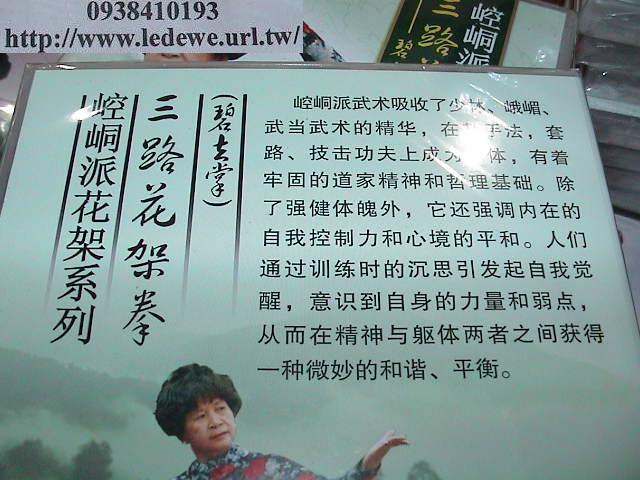 0938410193
http://www.ledewe.url.tw/
崆峒派
三路
碧
崆峒派花架系列
三路花架拳
(碧玄掌)
崆峒派武术吸收了少林、峨嵋、
武当武术的精华，在 手法，套
路、技击功夫上成为 体，有着
牢固的道家精神和哲理基础。除
了强健体魄外，它还强调内在的
自我控制力和心境的平和。人们
通过训练时的沉思引发起自我觉
醒，意识到自身的力量和弱点，
从而在精神与躯体两者之间获得
一种微妙的和谐、平衡。